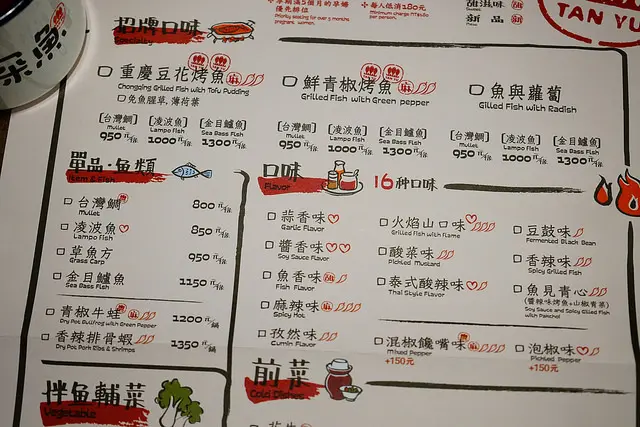 魚
招牌口味
Specialty
優先排位
Priority seating for over 5 months pregnant women.
每人低消180元
Minimum charge NT$180 per person.
甜滋味 甜
新品
TAN YU
重慶豆花烤魚 麻
Chongqing Grilled Fish with Tofu Pudding
免魚腥草,薄荷葉
[台灣鯛] [凌波魚] [金目鱸魚]
Mullet Lampo Fish Sea Bass Fish
950元/條 1000元/條 1300元/條
鮮青椒烤魚 麻
Grilled Fish with Green pepper
[台灣鯛] [凌波魚] [金目鱸魚]
Mullet Lampo Fish Sea Bass Fish
950元/條 1000元/條 1300元/條
魚與蘿蔔
Grilled Fish with Radish
[台灣鯛] [凌波魚] [金目鱸魚]
Mullet Lampo Fish Sea Bass Fish
950元/條 1000元/條 1300元/條
單品·魚類
Item & Fish
台灣鯛 800元/條
Mullet
凌波魚 850元/條
Lampo Fish
草魚方 950元/條
Grass Carp
金目鱸魚 1150元/條
Sea Bass Fish
青椒牛蛙 麻 1200元/鍋
Dry Pot Bullfrog with Green Pepper
香辣排骨蝦 1350元/鍋
Dry Pot Pork Ribs & Shrimps
拌魚輔菜
Vegetable
口味
Flavor
16種口味
蒜香味
Garlic Flavor
醬香味
Soy Sauce Flavor
魚香味 甜
Fish Flavor
麻辣味 麻
Spicy Hot
孜然味
Cumin Flavor
火焰山口味
Grilled Fish with flame
酸菜味
Pickled Mustard
泰式酸辣味
Thai Style Flavor
混椒饞嘴味 麻
Mixed Pepper
+150元
豆鼓味
Fermented Black Bean
香辣味
Spicy Grilled Fish
魚見青心
(醬辣味烤魚+山椒青菜)
Soy Sauce and Spicy Grilled Fish with Pakchoi
泡椒味
Pickled Pepper
+150元
前菜
Cold Dishes